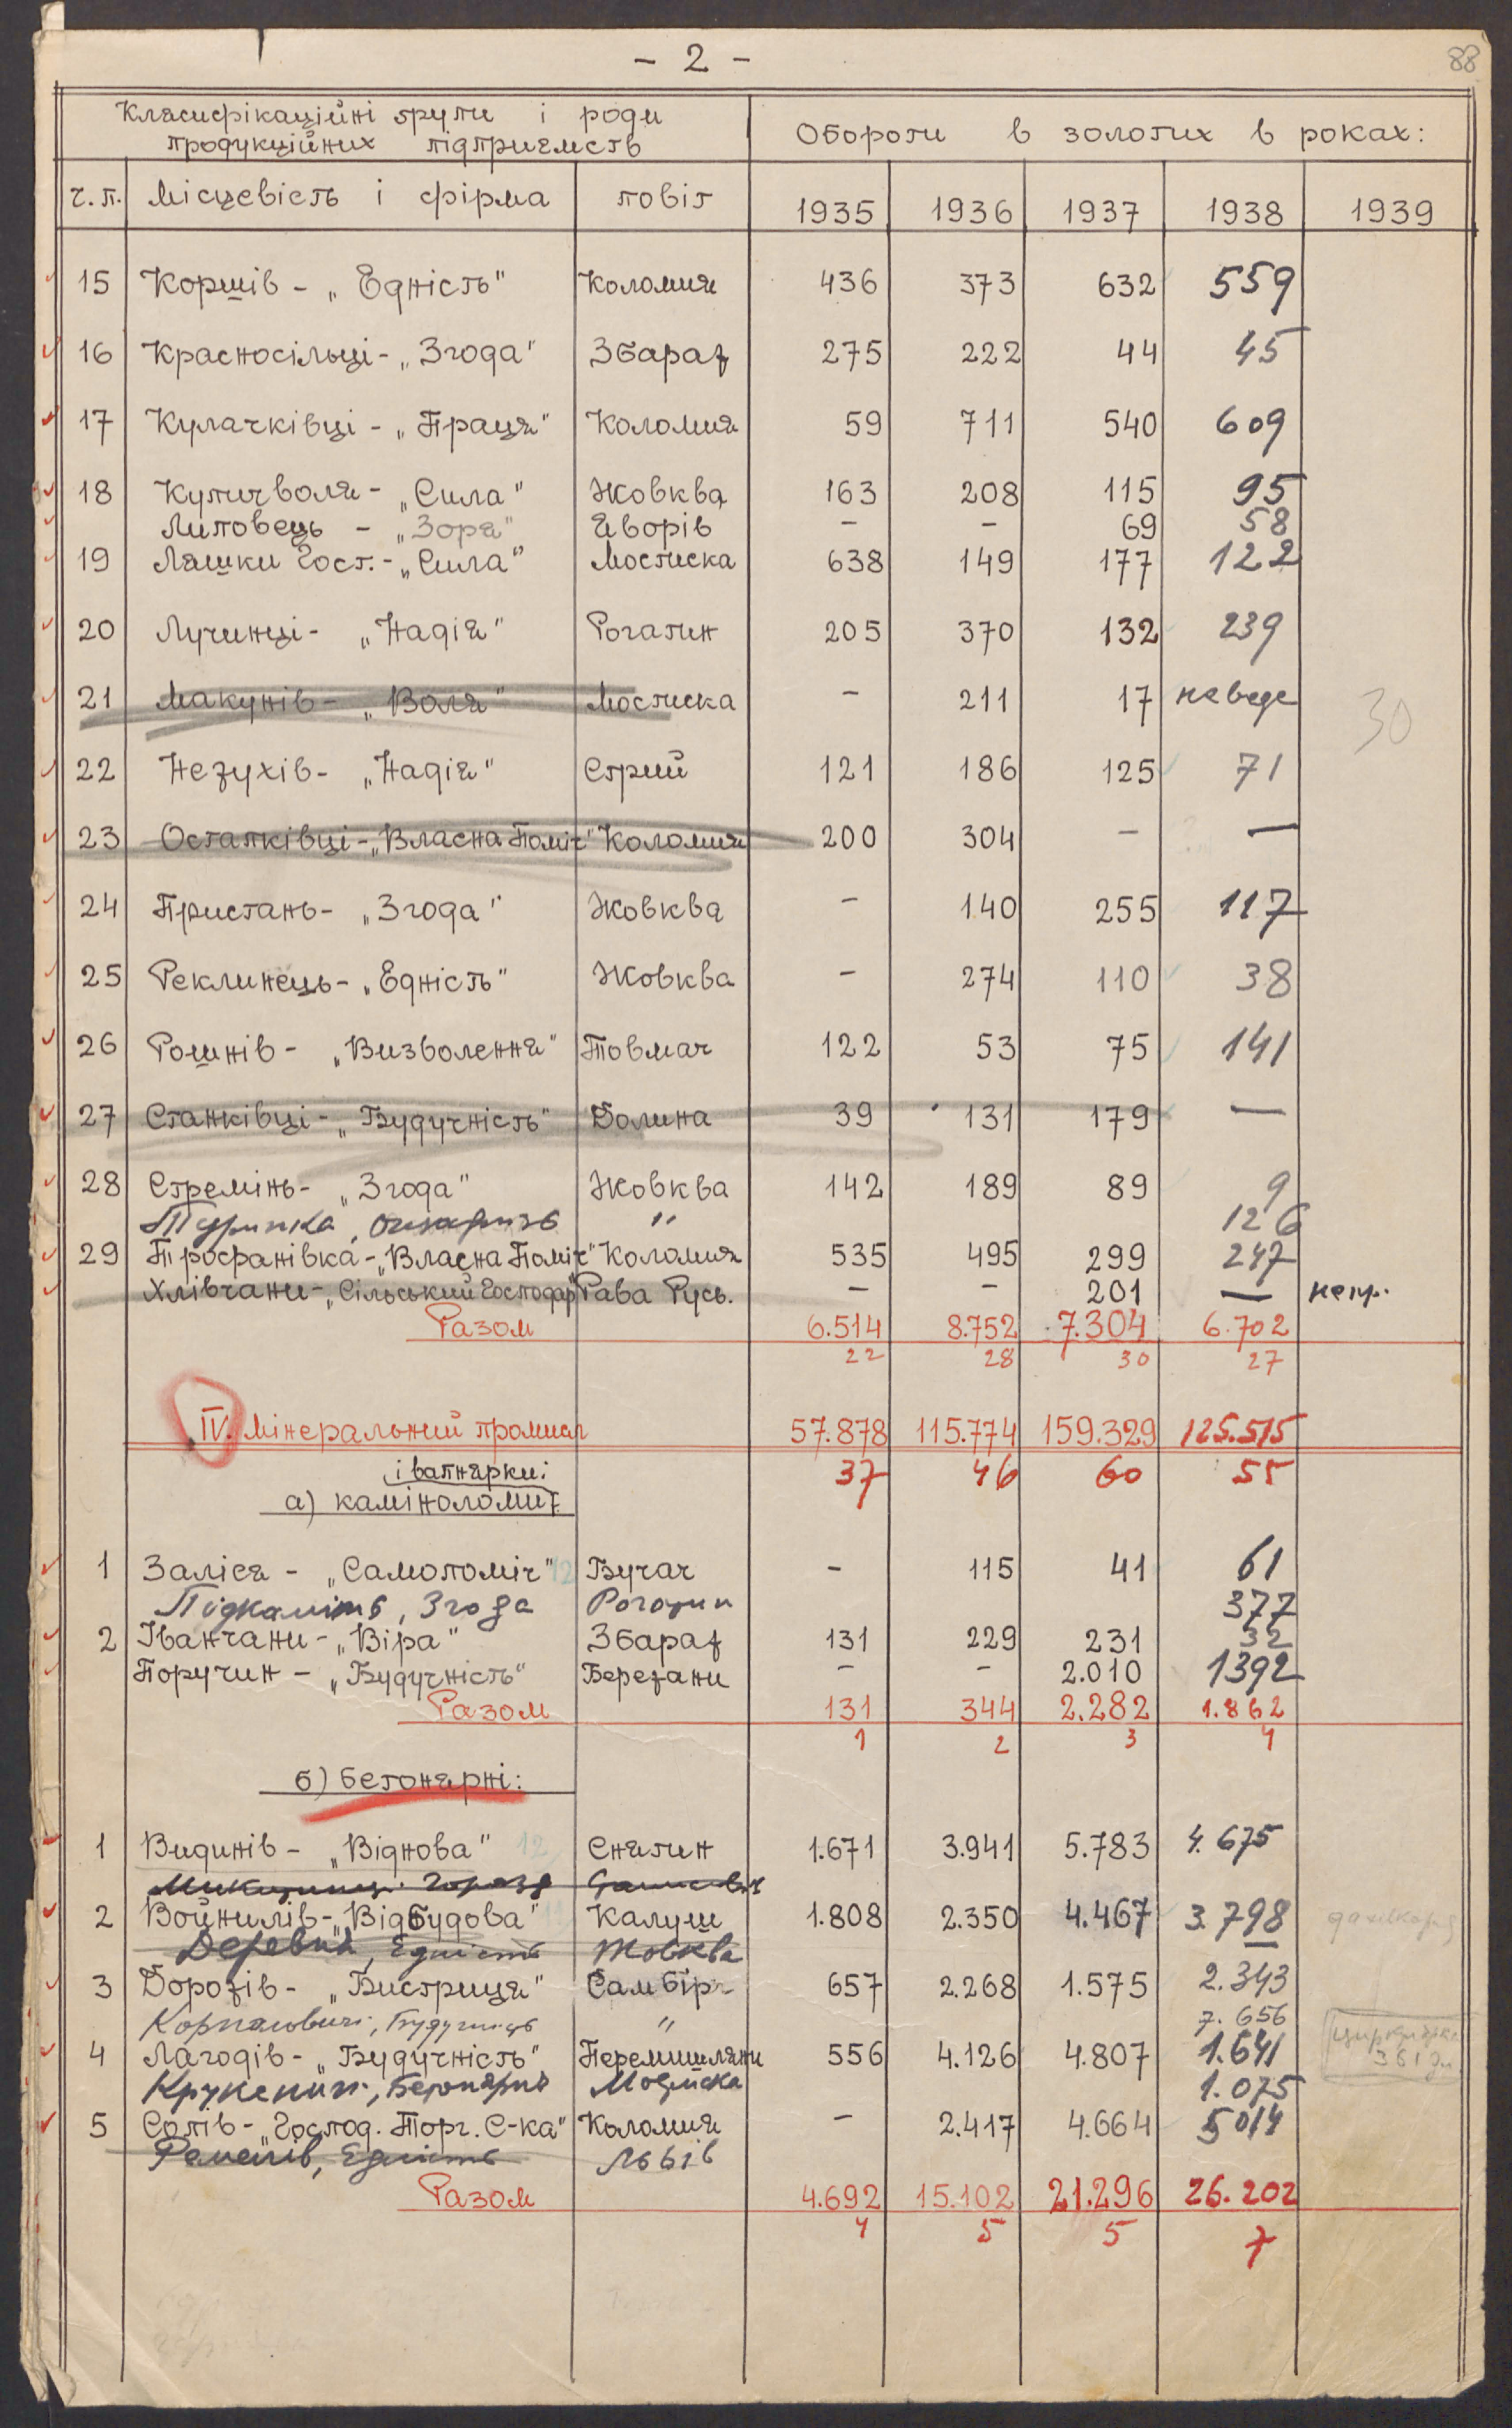 - 2 -
88
Класифікаційні групи і роди
продукційних підприємств
Обороти в золотих в роках:
ч.п. Місцевість і фірма повіт 1935 1936 1937 1938 1939
15 Коршів - „Єдність" Коломия 436 373 632 559
16 Красносільці - „Згода" Збараж 275 222 44 45
17 Кулачківці - „Праця" Коломия 59 711 540 609
18 Купичволя - „Сила" Жовква 163 208 115 95
Липовець - „Зоря" Яворів - - 69 58
19 Ляшки Гост. - „Сила" Мостиска 638 149 177 122
20 Лучинці - „Надія" Рогатин 205 370 132 239
21 Макунів - „Воля" Мостиска - 211 17 неведе
30
22 Нежухів - „Надія" Стрий 121 186 125 71
23 Остапківці - „Власна Поміч" Коломия 200 304 - —
24 Пристань - „Згода" Жовква - 140 255 117
25 Реклинець - „Єдність" Жовква - 274 110 38
26 Рошнів - „Визволення" Товмач 122 53 75 141
27 Станківці - „Будучність" Долина 39 131 179 —
28 Стремінь - „Згода" Жовква 142 189 89 9
Туринка, " 126
29 Трофанівка - „Власна Поміч" Коломия 535 495 299 247
Хлівчани - „Сільський Господар" Рава Русь. - - 201 — непр.
Разом 6.514 8.752 7.304 6.702
22 28 30 27
IV. Мінеральний промисл 57.878 115.774 159.329 125.515
37 46 60 55
і вапнярки:
а) каміноломи
1 Заліся - „Самопоміч" 12 Бучач - 115 41 61
Підкамінь, Згода Рогатин 377
2 Іванчани - „Віра" Збараж 131 229 231 32
Поручин - „Будучність" Бережани - - 2.010 1392
Разом 131 344 2.282 1.862
1 2 3 4
б) бетонярні:
1 Видинів - „Віднова" 12 Снятин 1.671 3.941 5.783 4.675
2 Войнилів - „Відбудова" Калуш 1.808 2.350 4.467 3.798
Деревня, Єдність Жовква
3 Дорожів - „Бистриця" Самбір 657 2.268 1.575 2.343
Корналовичі, Будучність " 7.656
4 Лагодів - „Будучність" Перемишляни 556 4.126 4.807 1.641
Крукеничі, Бетонярня Мостиска 1.075
5 Сопів - „Господ. Торг. С-ка" Коломия - 2.417 4.664 5014
Ременів, Єдність Львів
Разом 4.692 15.102 21.296 26.202
4 5 5 7